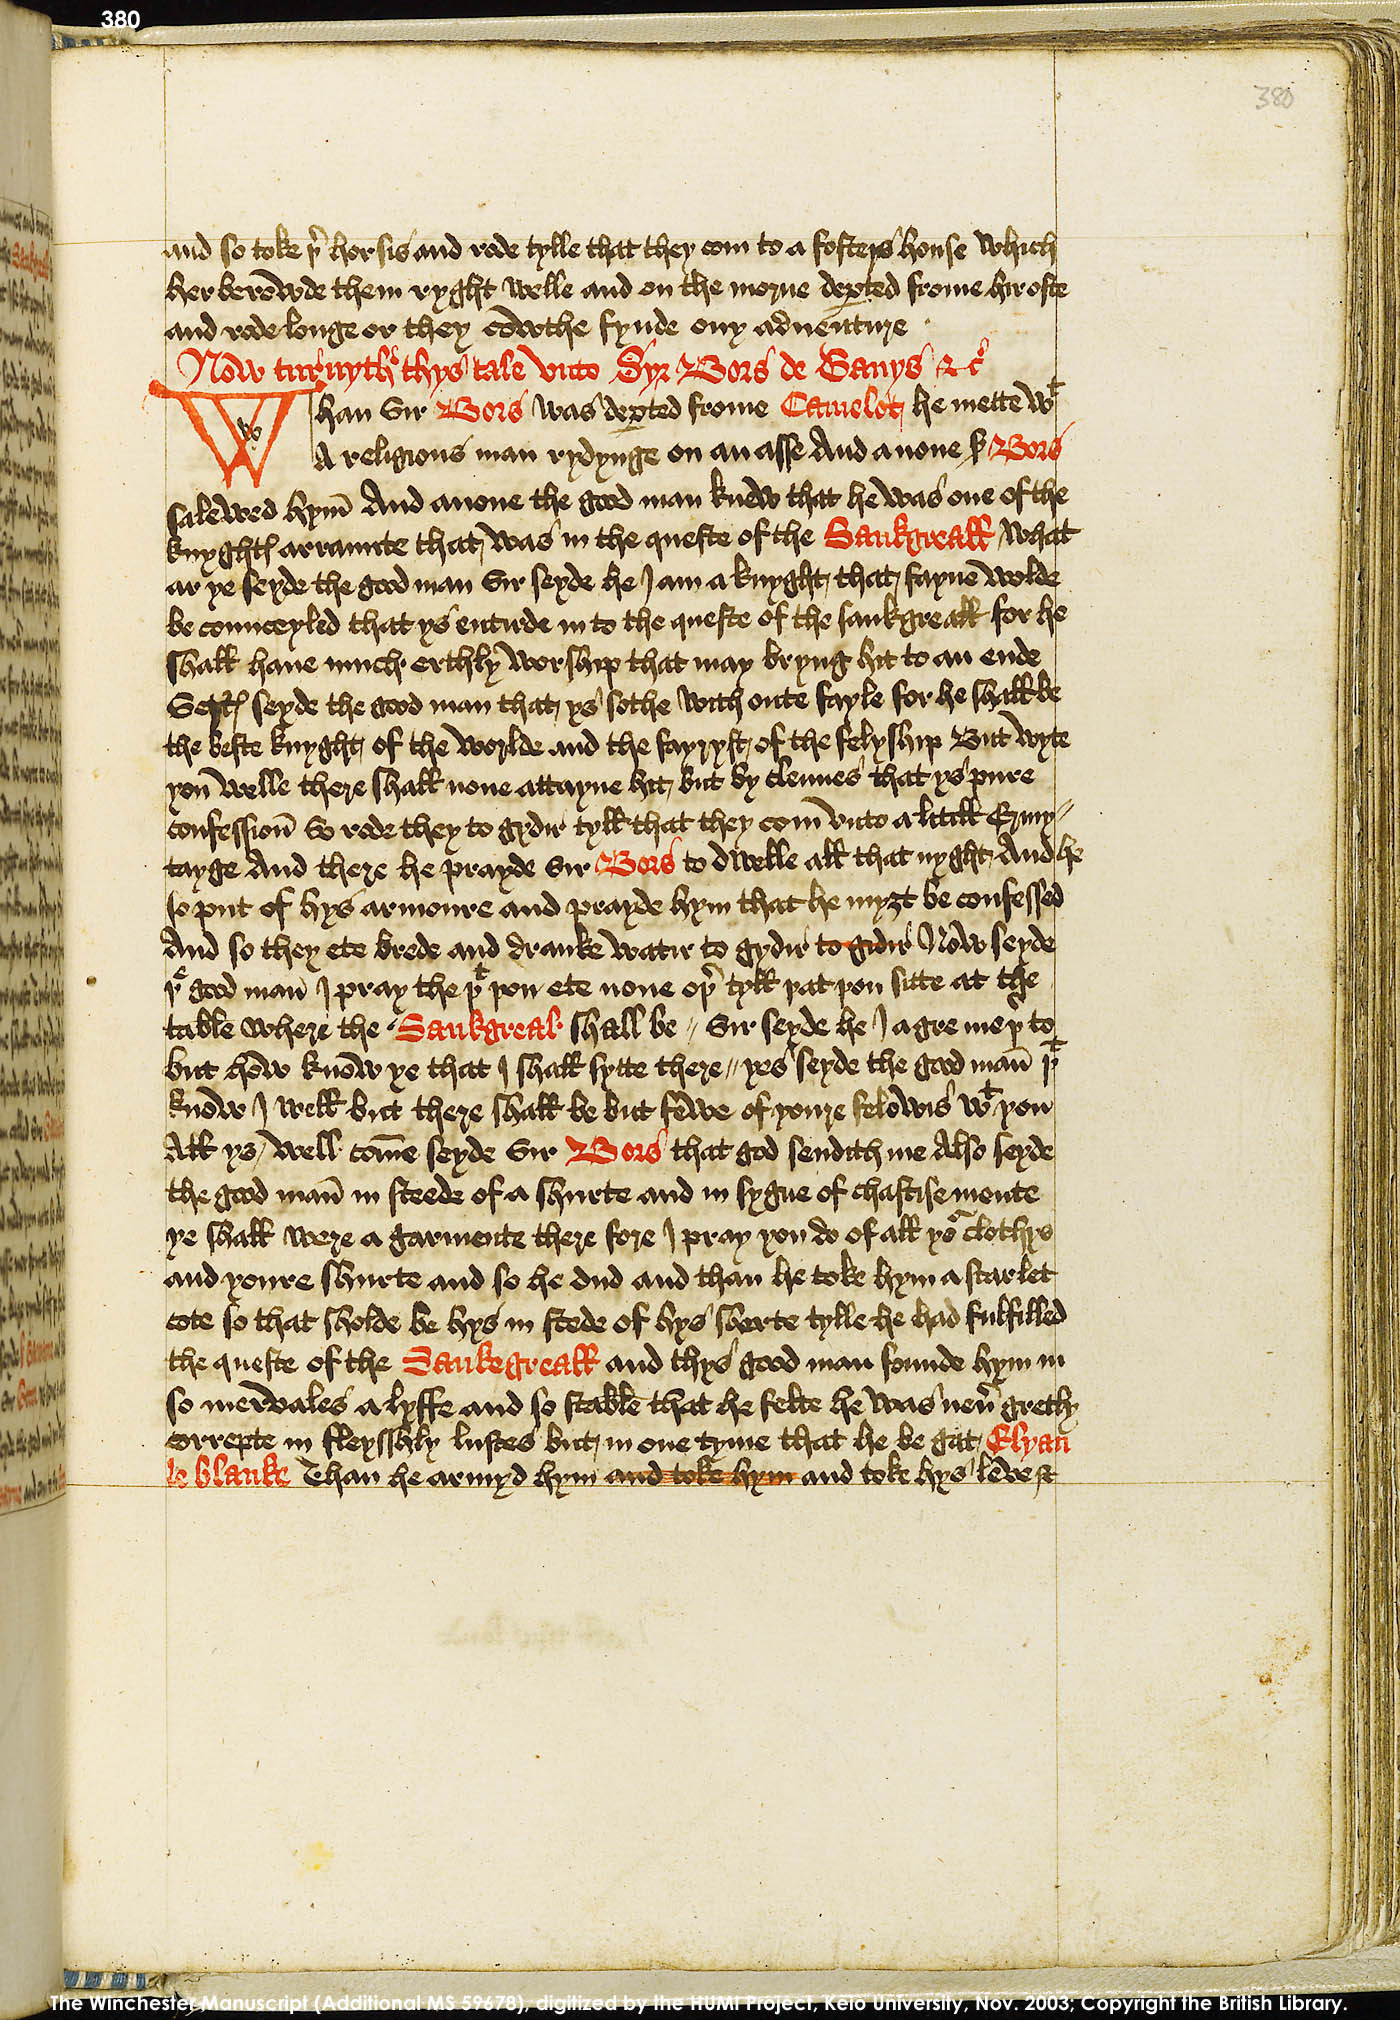 380
380
and so toke þr horsis and rode tylle that they com to a fosters house which
herberowde them ryght welle and on the morne deꝑted frome hir oste
and rode longe or they cowthe fynde ony adventure
Now turnyth thys tale unto Syr Bors de Ganys &c
Whan Sir Bors was deꝑted frome Camelot he mette wt
A religious man rydynge on an asse And anone sr Bors
salewed hym And anone the good man knew that he was one of the
knyghtes arraunte that was in the queste of the Sankgreall What
ar ye seyde the good man Sir seyde he I am a knyght that fayne wolde
be counceyled that ys entirde in to the queste of the sankgreall for he
shall have much erthly worship that may bryng hit to an ende
Sertes seyde the good man that ys sothe with oute fayle for he shall be
the beste knyght of the worlde and the fayryst of the felyship But wyte
you welle there shall none attayne hit but by clennes that ys pure
confession So rode they to gydir tyll that they com unto a litill Ermy〃
tayge And there he prayde Sir Bors to dwelle all that nyght And he
so put of hys armoure and prayde hym that he myȝt be confessed
And so they ete brede and dranke watir to gydir to gidir Now seyde
þe good man I pray the þt þou ete none oþr tyll þat þou sitte at the
table where the Sankgreal shall be〃 Sir seyde he I agre me þr to
but how know ye that I shall sytte there〃 yes seyde the good man þt
know I well but there shall be but fewe of youre felowis wt you
All ys well come seyde Sir Bors that god sendith me Also seyde
the good man in steede of a shurte and in sygne of chastisemente
ye shall were a garmente there fore I pray you do of all yor clothys
and youre shurte and so he dud and than he toke hym a scarlet
cote so that sholde be hys in stede of hys sherte tylle he had fulfilled
the queste of the Sankegreall and thys good man founde hym in
so mervales a lyffe and so stable that he felte he was nevr gretly
correpte in fleysshly lustes but in one tyme that he be gat Elyan
le blanke Than he armyd hym and toke hym and toke hys leve st
The Winchester Manuscript (Additional MS 59678), digitized by the HUMI Project, Keio University, Nov. 2003; Copyright the British Library.